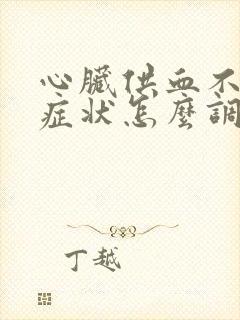 心臟供血不
症状怎麼調
丁越